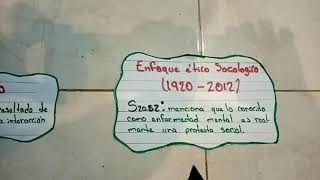 o
esultado de
a interacción
Enfoque ético Sociológico
(1920-2012)
Szasz: menciona que lo conocido
como enfermedad mental es real
mente una protesta social.